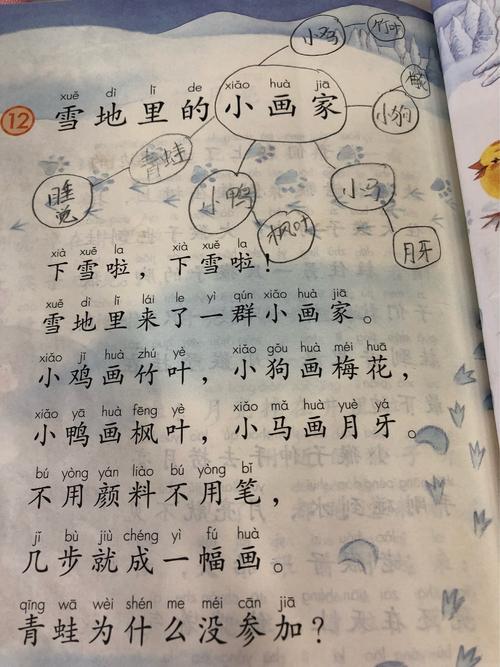 小鸡 竹叶
xuě dì lǐ de xiǎo huà jiā
12 雪地里的小画家
小狗
青蛙
睡觉
小鸭
小马
枫叶
月牙
xià xuě la xià xuě la
下雪啦，下雪啦！
xuě dì lǐ lái le yì qún xiǎo huà jiā
雪地里来了一群小画家。
xiǎo jī huà zhú yè xiǎo gǒu huà méi huā
小鸡画竹叶，小狗画梅花，
xiǎo yā huà fēng yè xiǎo mǎ huà yuè yá
小鸭画枫叶，小马画月牙。
bú yòng yán liào bú yòng bǐ
不用颜料不用笔，
jǐ bù jiù chéng yì fú huà
几步就成一幅画。
qīng wā wèi shén me méi cān jiā
青蛙为什么没参加？